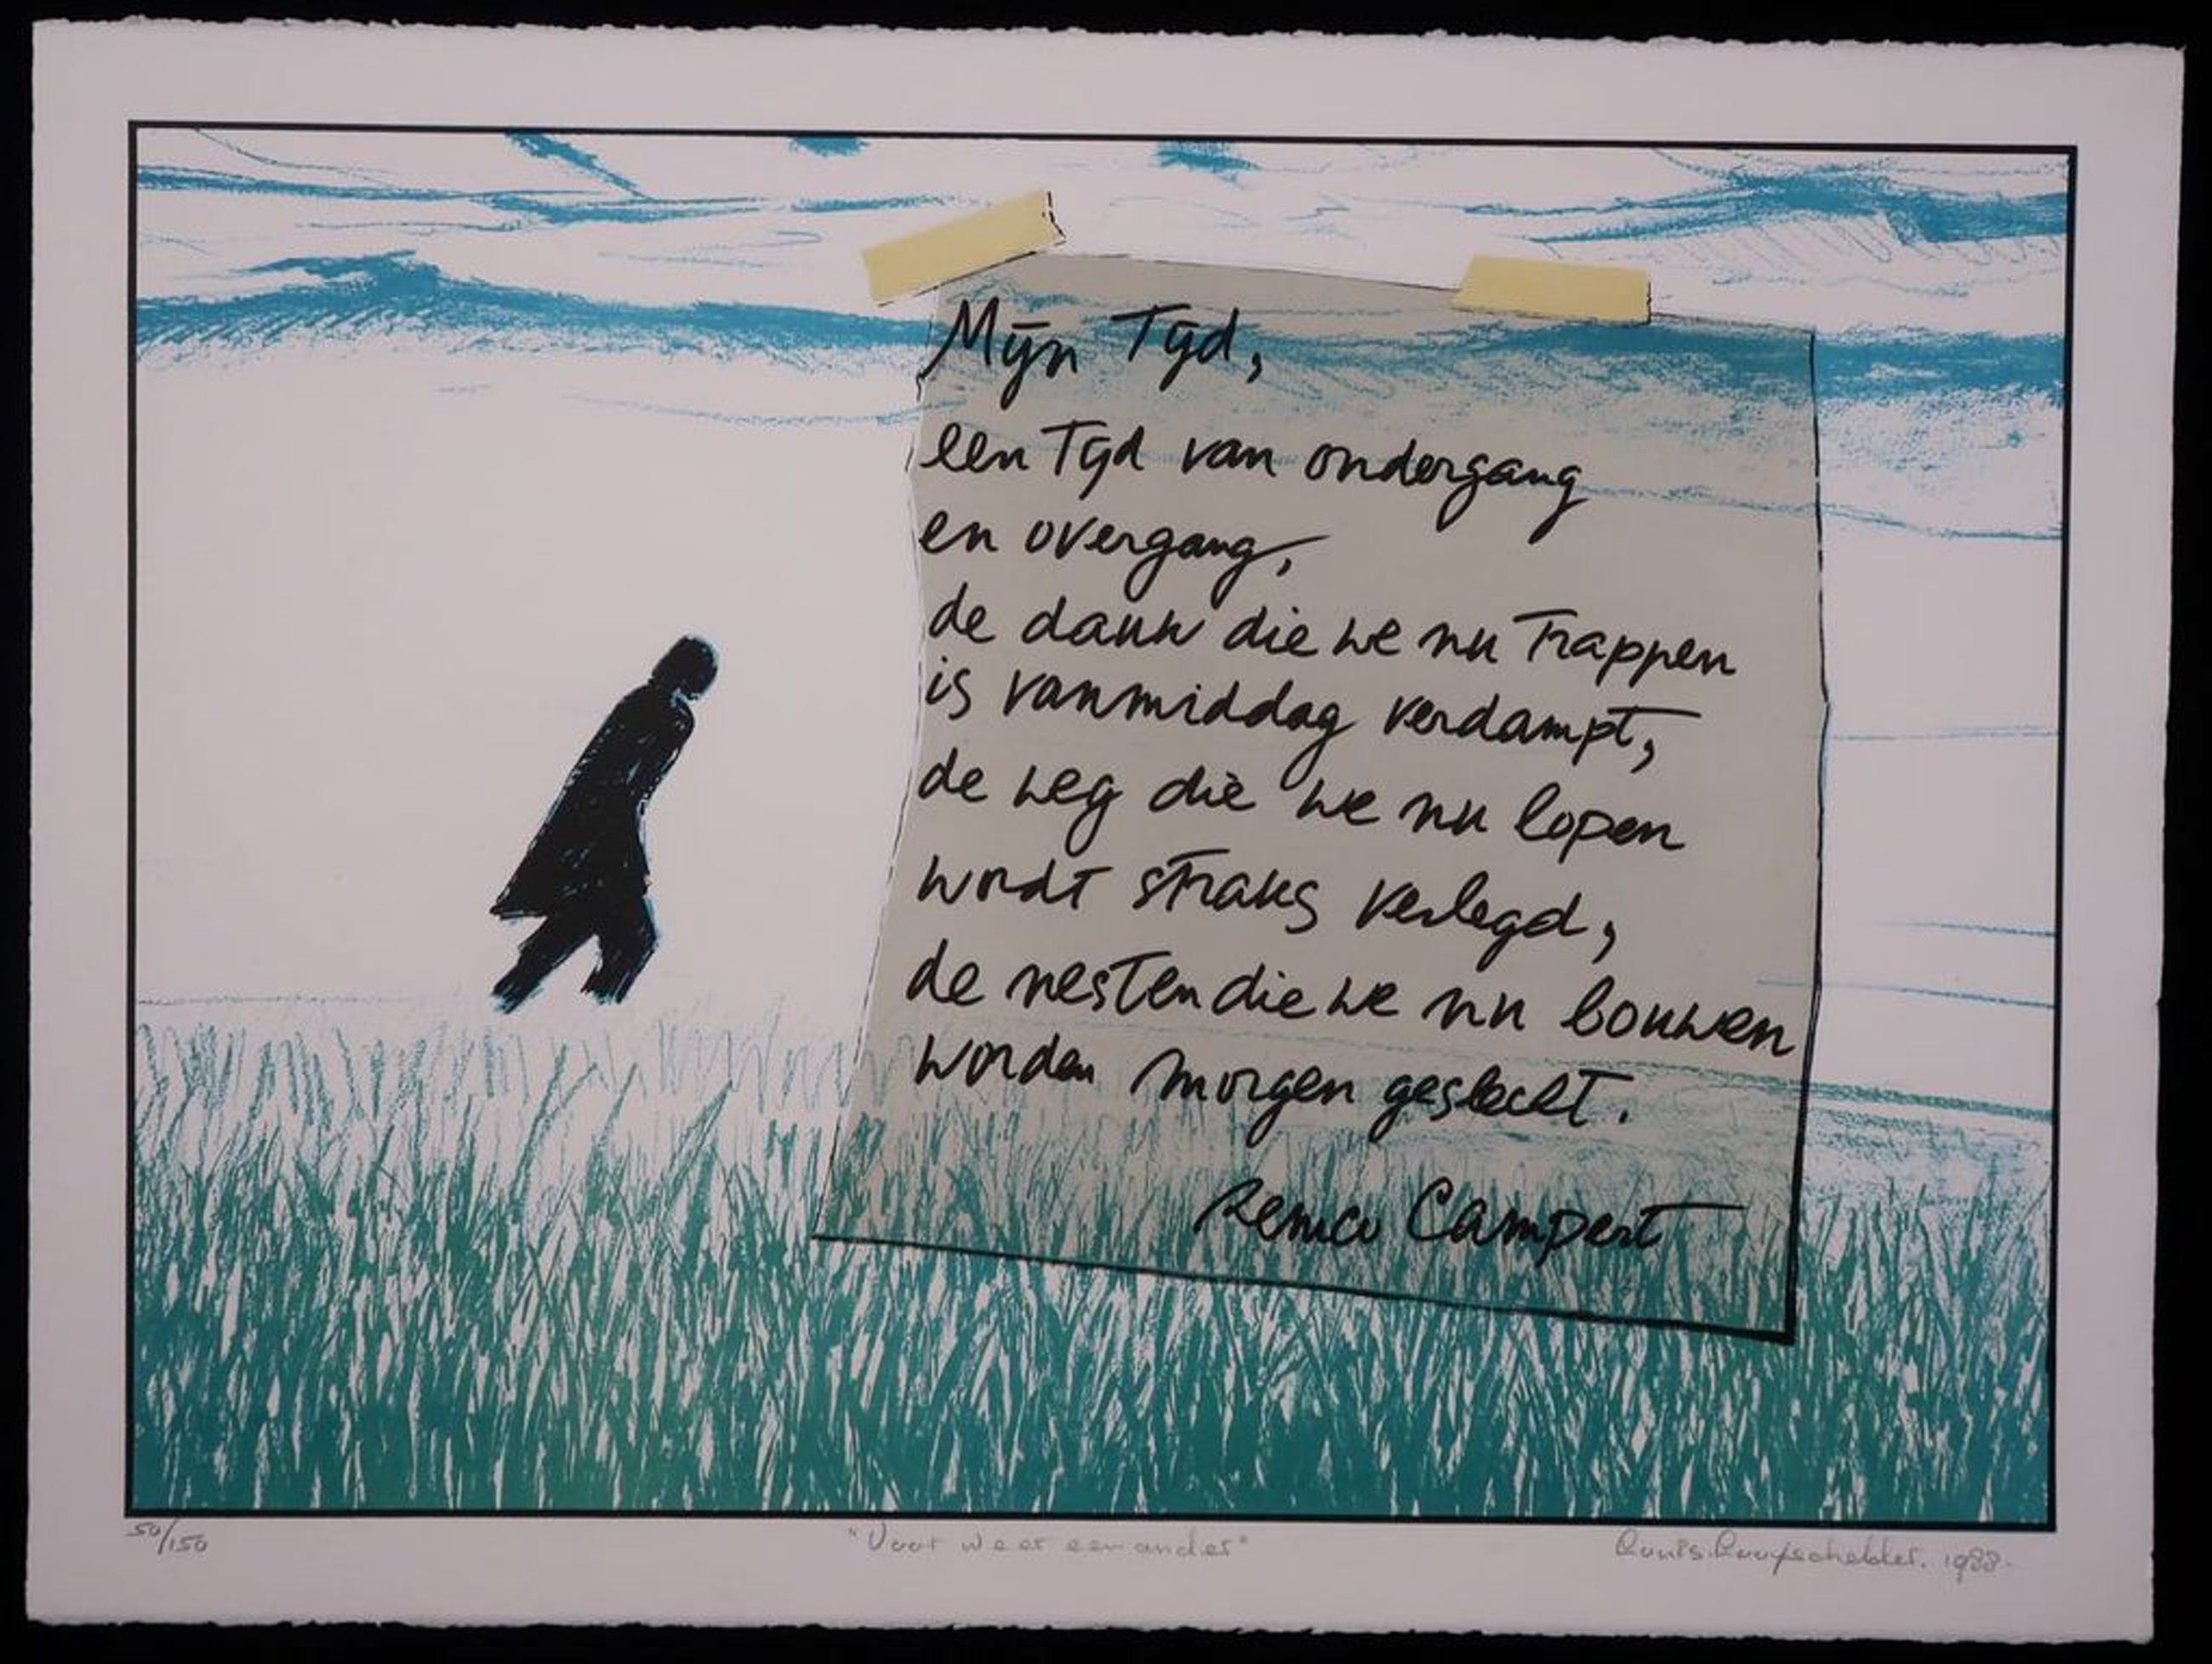 Mijn Tijd,
een Tijd van ondergang
en overgang,
de dauw die we nu Trappen
is vanmiddag verdampt,
de weg die we nu lopen
wordt straks verlegd,
de nesten die we nu bouwen
worden morgen geslecht.
Remco Campert
50/150
"Voor weer een ander"
1988.